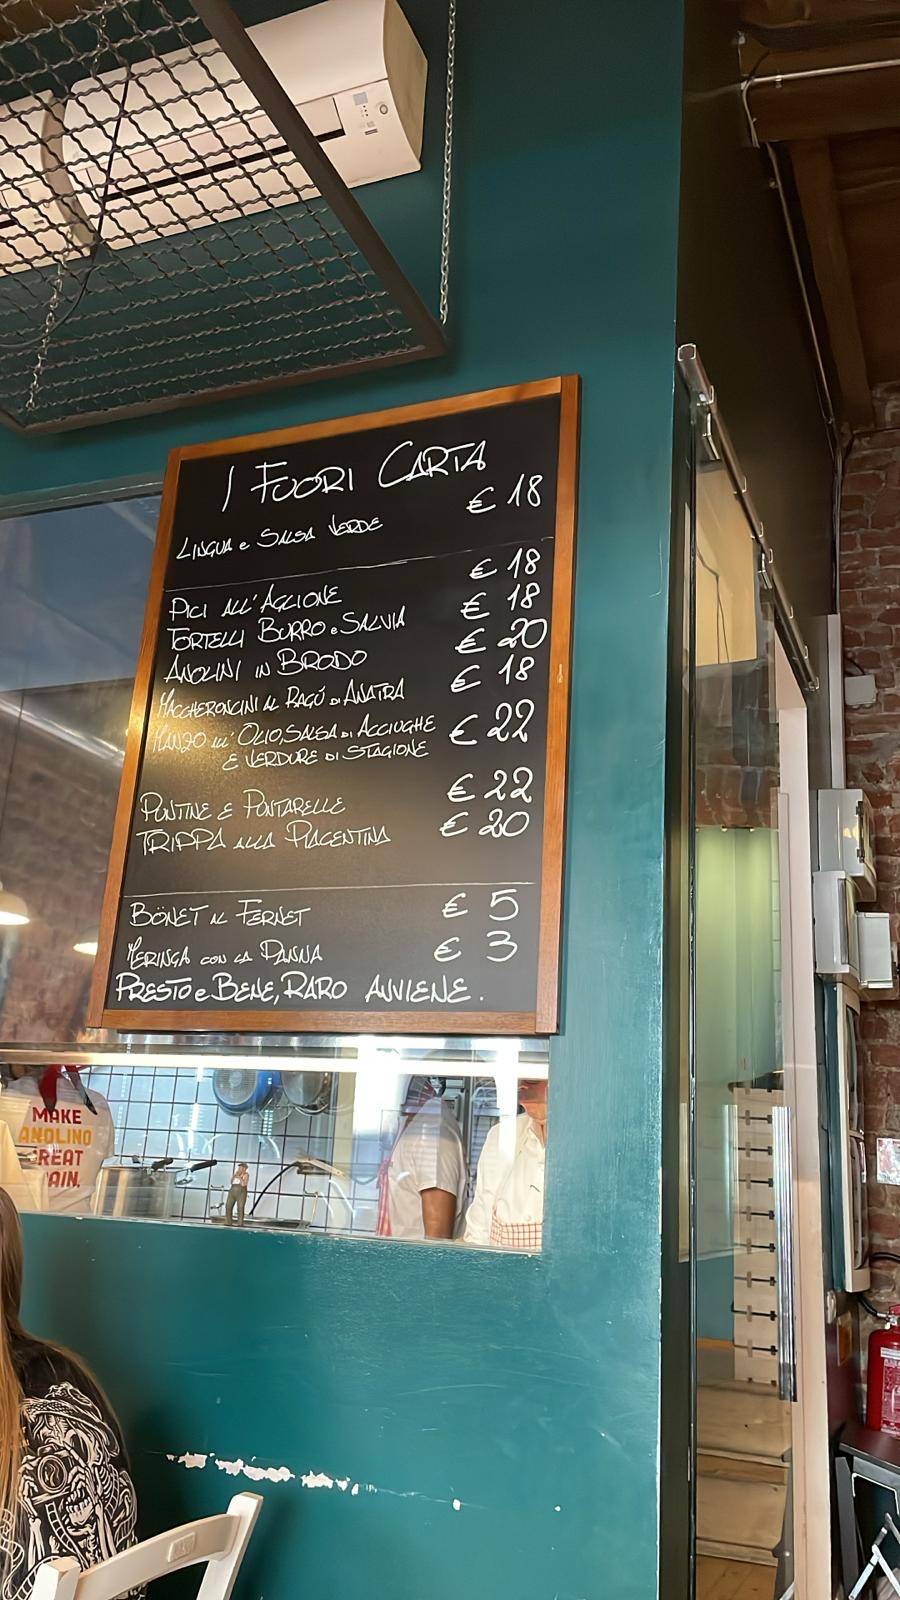 I FUORI CARTA
LINGUA e SALSA VERDE € 18
PICI ALL'AGLIONE € 18
TORTELLI BURRO e SALVIA € 18
ANOLINI IN BRODO € 20
MACCHERONCINI AL RAGÚ DI ANATRA € 18
MANZO ALL'OLIO, SALSA DI ACCIUGHE € 22
E VERDURE DI STAGIONE
PUNTINE E PUNTARELLE € 22
TRIPPA ALLA PIACENTINA € 20
BÖNET AL FERNET € 5
MERINGA CON LA PANNA € 3
PRESTO e BENE, RARO AVVIENE.
MAKE
ANOLINO
GREAT
AIN.